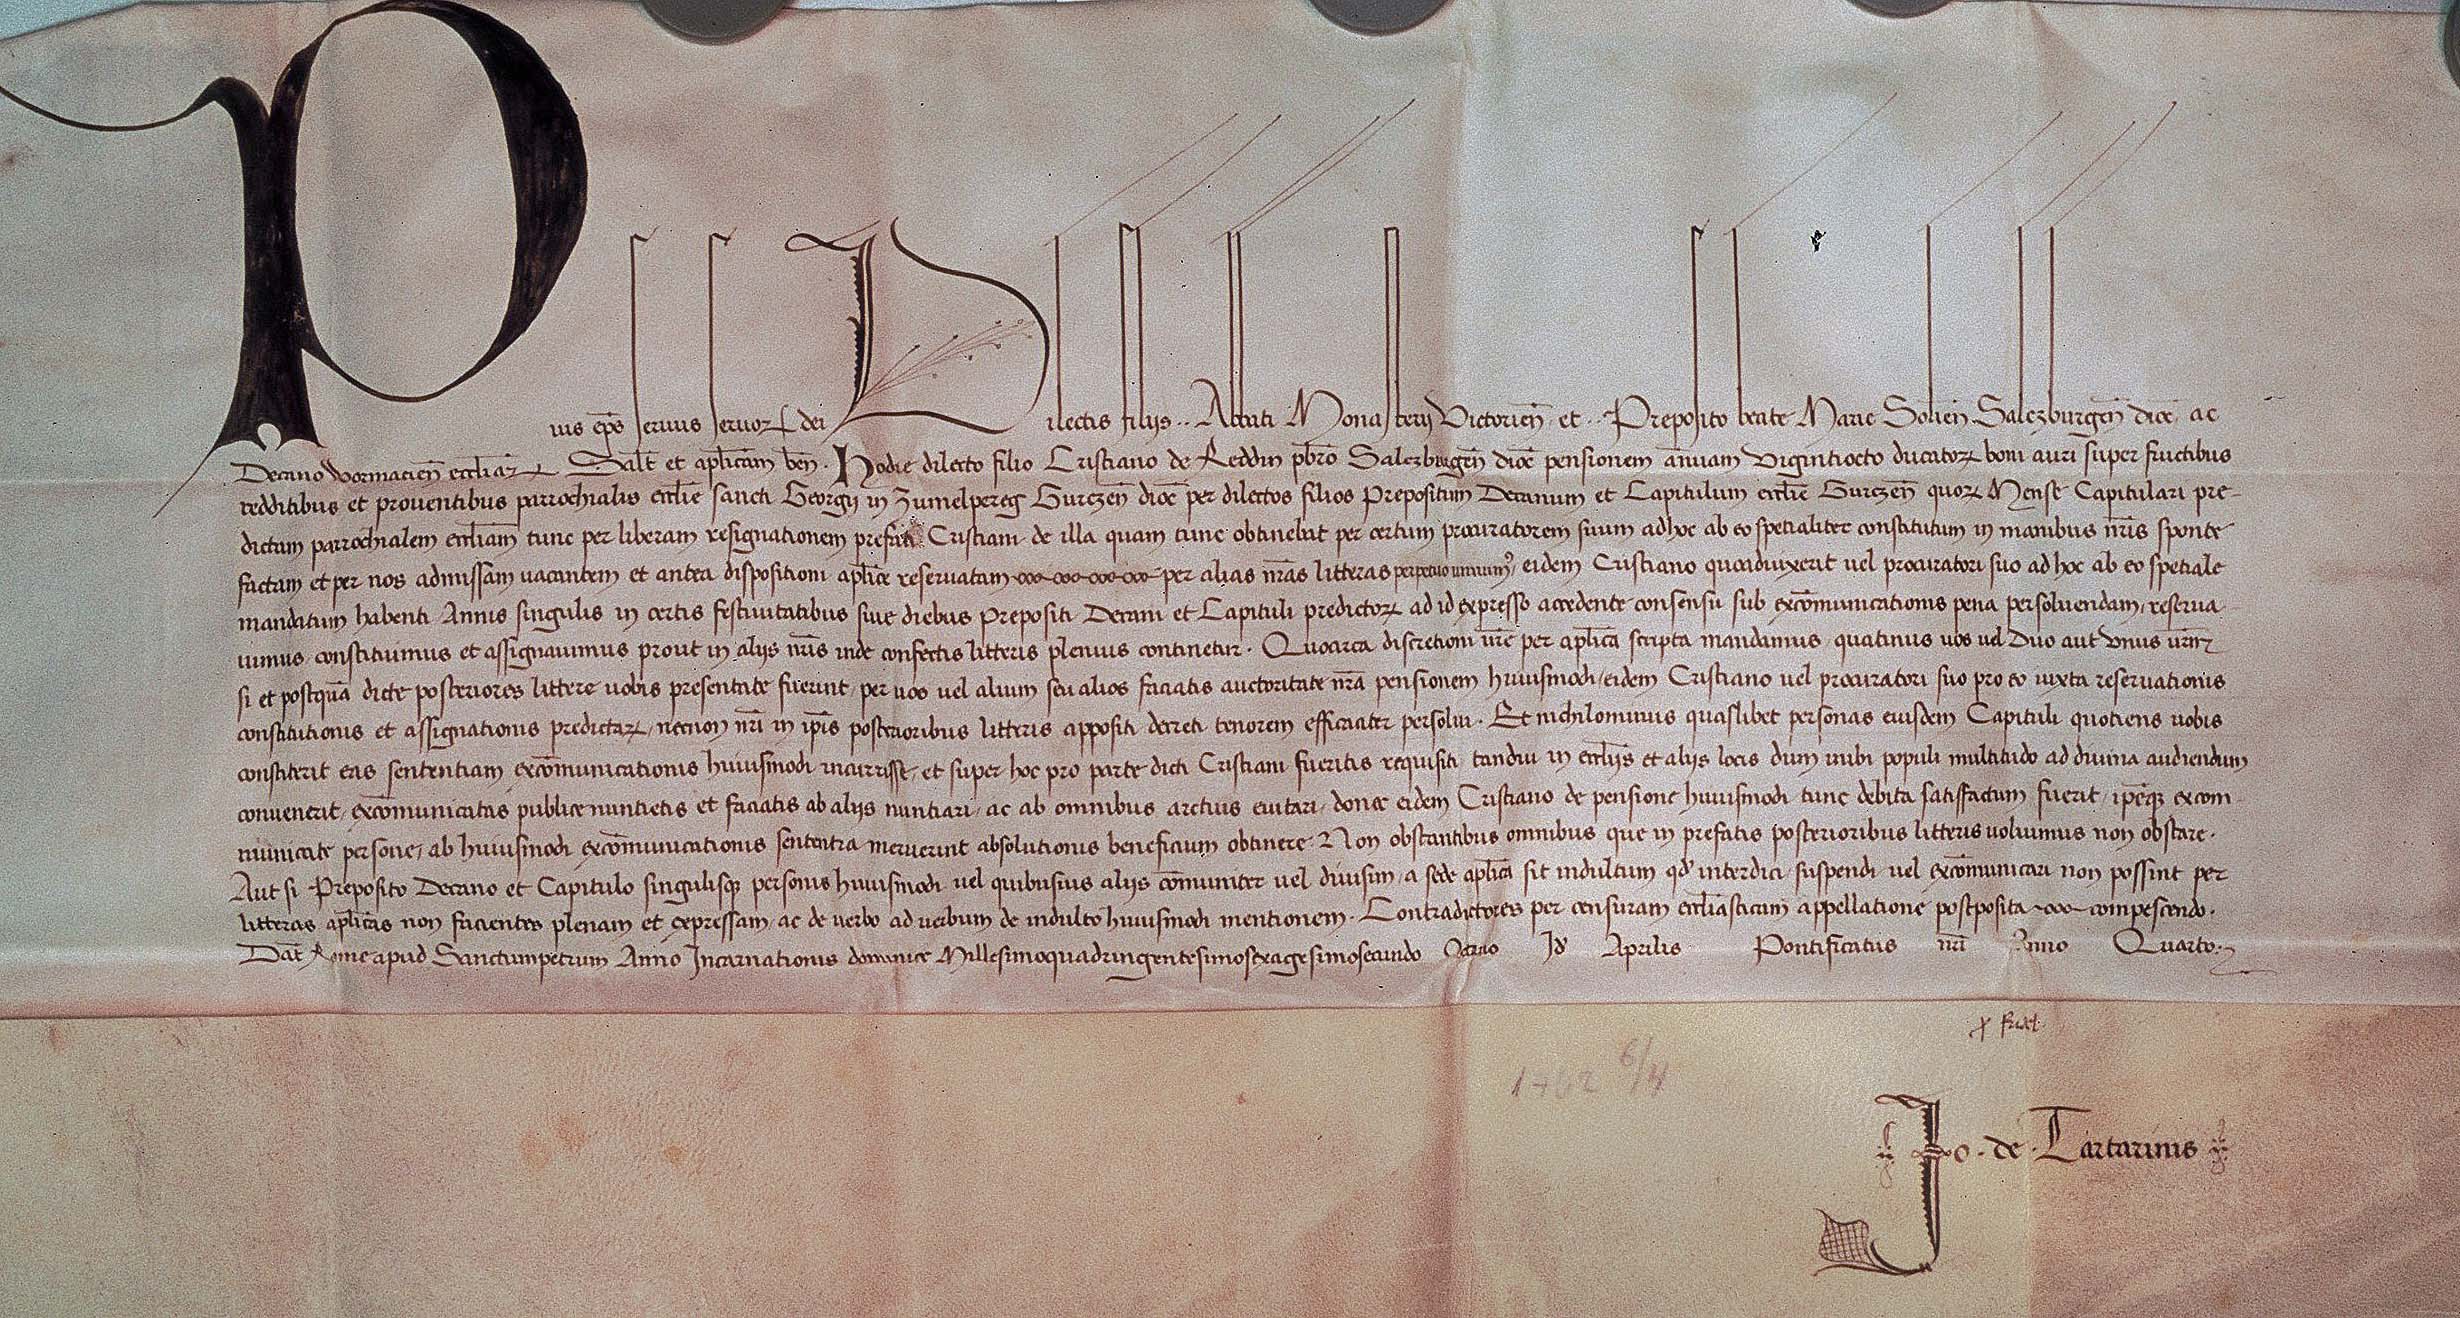 Pius ep̄s seruus seruoꝝ dei Dilectis filijs ·· Abbati Monasterij Victorien̄ et ·· Preposito beate Marie Solien̄ Salczburgen̄ dioc̄ ac
Decano Wormacien̄ eccl̄iaꝝ Salt̄ et ap̄licam ben̄ · Hodie dilecto filio Cristiano de Reddin pb̄ro Salczburgen̄ dioc̄ pensionem annuam Vigintiocto ducatoꝝ boni auri super fructibus
redditibus et prouentibus parrochialis eccl̄ie sancti Georgij in Zumelpereg Gurczen̄ dioc̄ per dilectos filios Prepositum Decanum et Capitulum eccl̄ie Gurczen̄ quoꝝ Mense Capitulari pre-
dictam parrochialem eccl̄iam tunc per liberam resignationem prefati Cristiani de illa quam tunc obtinebat per certum procuratorem suum adhoc ab eo spetialiter constitutum in manibus nr̄is sponte
factam et per nos admissam uacantem et antea dispositioni ap̄lice reseruatam per alias nr̄as litteras perpetuo uniuimꝰ, eidem Cristiano quoaduixerit uel procuratori suo ad hoc ab eo spetiale
mandatum habenti Annis singulis in certis festiuitatibus siue diebus Prepositi Decani et Capituli predictoꝝ ad id expresso accedente consensu sub excōmunicationis pena persoluendam, reserua-
uimus constituimus et assignauimus prout in alijs nr̄is inde confectis litteris plenius continetur · Quocirca discretioni ur̄e per ap̄lica scripta mandamus, quatinus uos uel Duo aut Vnus ur̄m̄
si et postquā dicte posteriores littere uobis presentate fuerint, per uos uel alium seu alios faciatis auctoritate nr̄a pensionem huiusmodi, eidem Cristiano uel procuratori suo pro eo iuxta reseruationis
constitutionis et assignationis predictaꝝ, necnon nr̄i in ip̄is posterioribus litteris appositi decreti tenorem efficaciter persolui · Et nichilominus quaslibet personas eiusdem Capituli quotiens uobis
constiterit eas sententiam excōmunicationis huiusmodi incurrisse, et super hoc pro parte dicti Cristiani fueritis requisiti tandiu in eccl̄ijs et alijs locis dum inibi populi multitudo ad diuina audiendum
conuenerit, excōmunicatas publice nuntietis et faciatis ab alijs nuntiari, ac ab omnibus arctius euitari, donec eidem Cristiano de pensione huiusmodi tunc debita satisfactum fuerit, ip̄eqꝫ excom-
municate persone, ab huiusmodi excōmunicationis sententia meruerint absolutionis beneficium obtinere · Non obstantibus omnibus que in prefatis posterioribus litteris uoluimus non obstare ·
Aut si Preposito Decano et Capitulo singulisqꝫ personis huiusmodi uel quibusuis alijs cōmuniter uel diuisim, a sede ap̄lica sit indultum qd̄ interdici suspendi uel excōmunicari non possint per
litteras ap̄licas non facientes plenam et expressam, ac de uerbo ad uerbum de indulto huiusmodi mentionem · Contradictores per censuram eccl̄iasticam appellatione postposita compescendo ·
Dat̄ Rome apud Sanctumpetrum Anno Incarnationis dominice Millesimoquadringentesimosexagesimosecundo Octauo Id̄ Aprilis Pontificatus nr̄i Anno Quarto ·
1462 6/4
Jo · de · Tartarinis